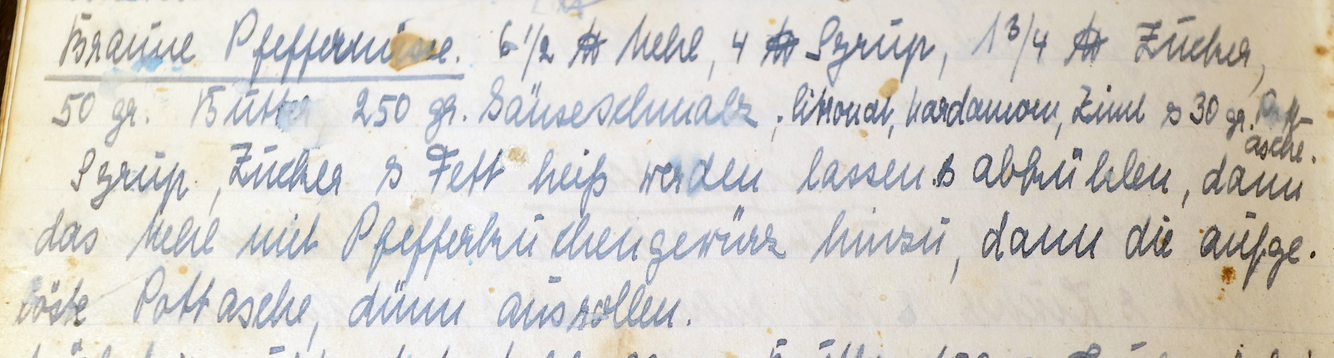 Braune Pfeffernüsse. 6 1/2 ℔ Mehl, 4 ℔ Syrup, 1 3/4 ℔ Zucker,
50 gr. Butter 250 gr. Gänseschmalz, Citronat, Kardamom, Zimt & 30 gr. Pott-
asche.
Syrup, Zucker & Fett heiß werden lassen & abkühlen, dann
das Mehl mit Pfefferkuchengewürz hinzu, dann die aufge-
löste Pottasche, dünn ausrollen.